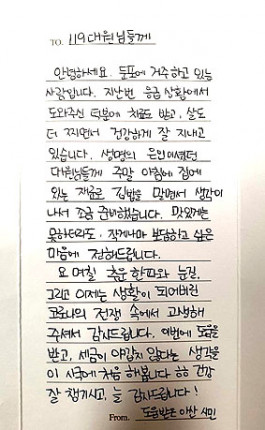 TO. 119대원님들께
안녕하세요. 둔포에 거주하고 있는
사람입니다. 지난번 응급 상황에서
도와주신 덕분에 치료도 받고, 살도
더 찌면서 건강하게 잘 지내고
있습니다. 생명의 은인이셨던
대원님들께 주말 아침에 집에
있는 재료로 김밥을 말면서 생각이
나서 조금 준비했습니다. 맛있게는
못하더라도, 작게나마 보답하고 싶은
마음에 전해드립니다.
요 며칠 추운 한파와 눈길,
그리고 이제는 생활이 되어버린
코로나와 전쟁 속에서 고생해
주셔서 감사드립니다. 이번에 도움을
받고, 세금이 아깝지 않다는 생각을
이 시국에 처음 해봅니다 ㅎㅎ 건강
잘 챙기시고, 늘 감사드립니다!
From. 도움받은 아산 시민